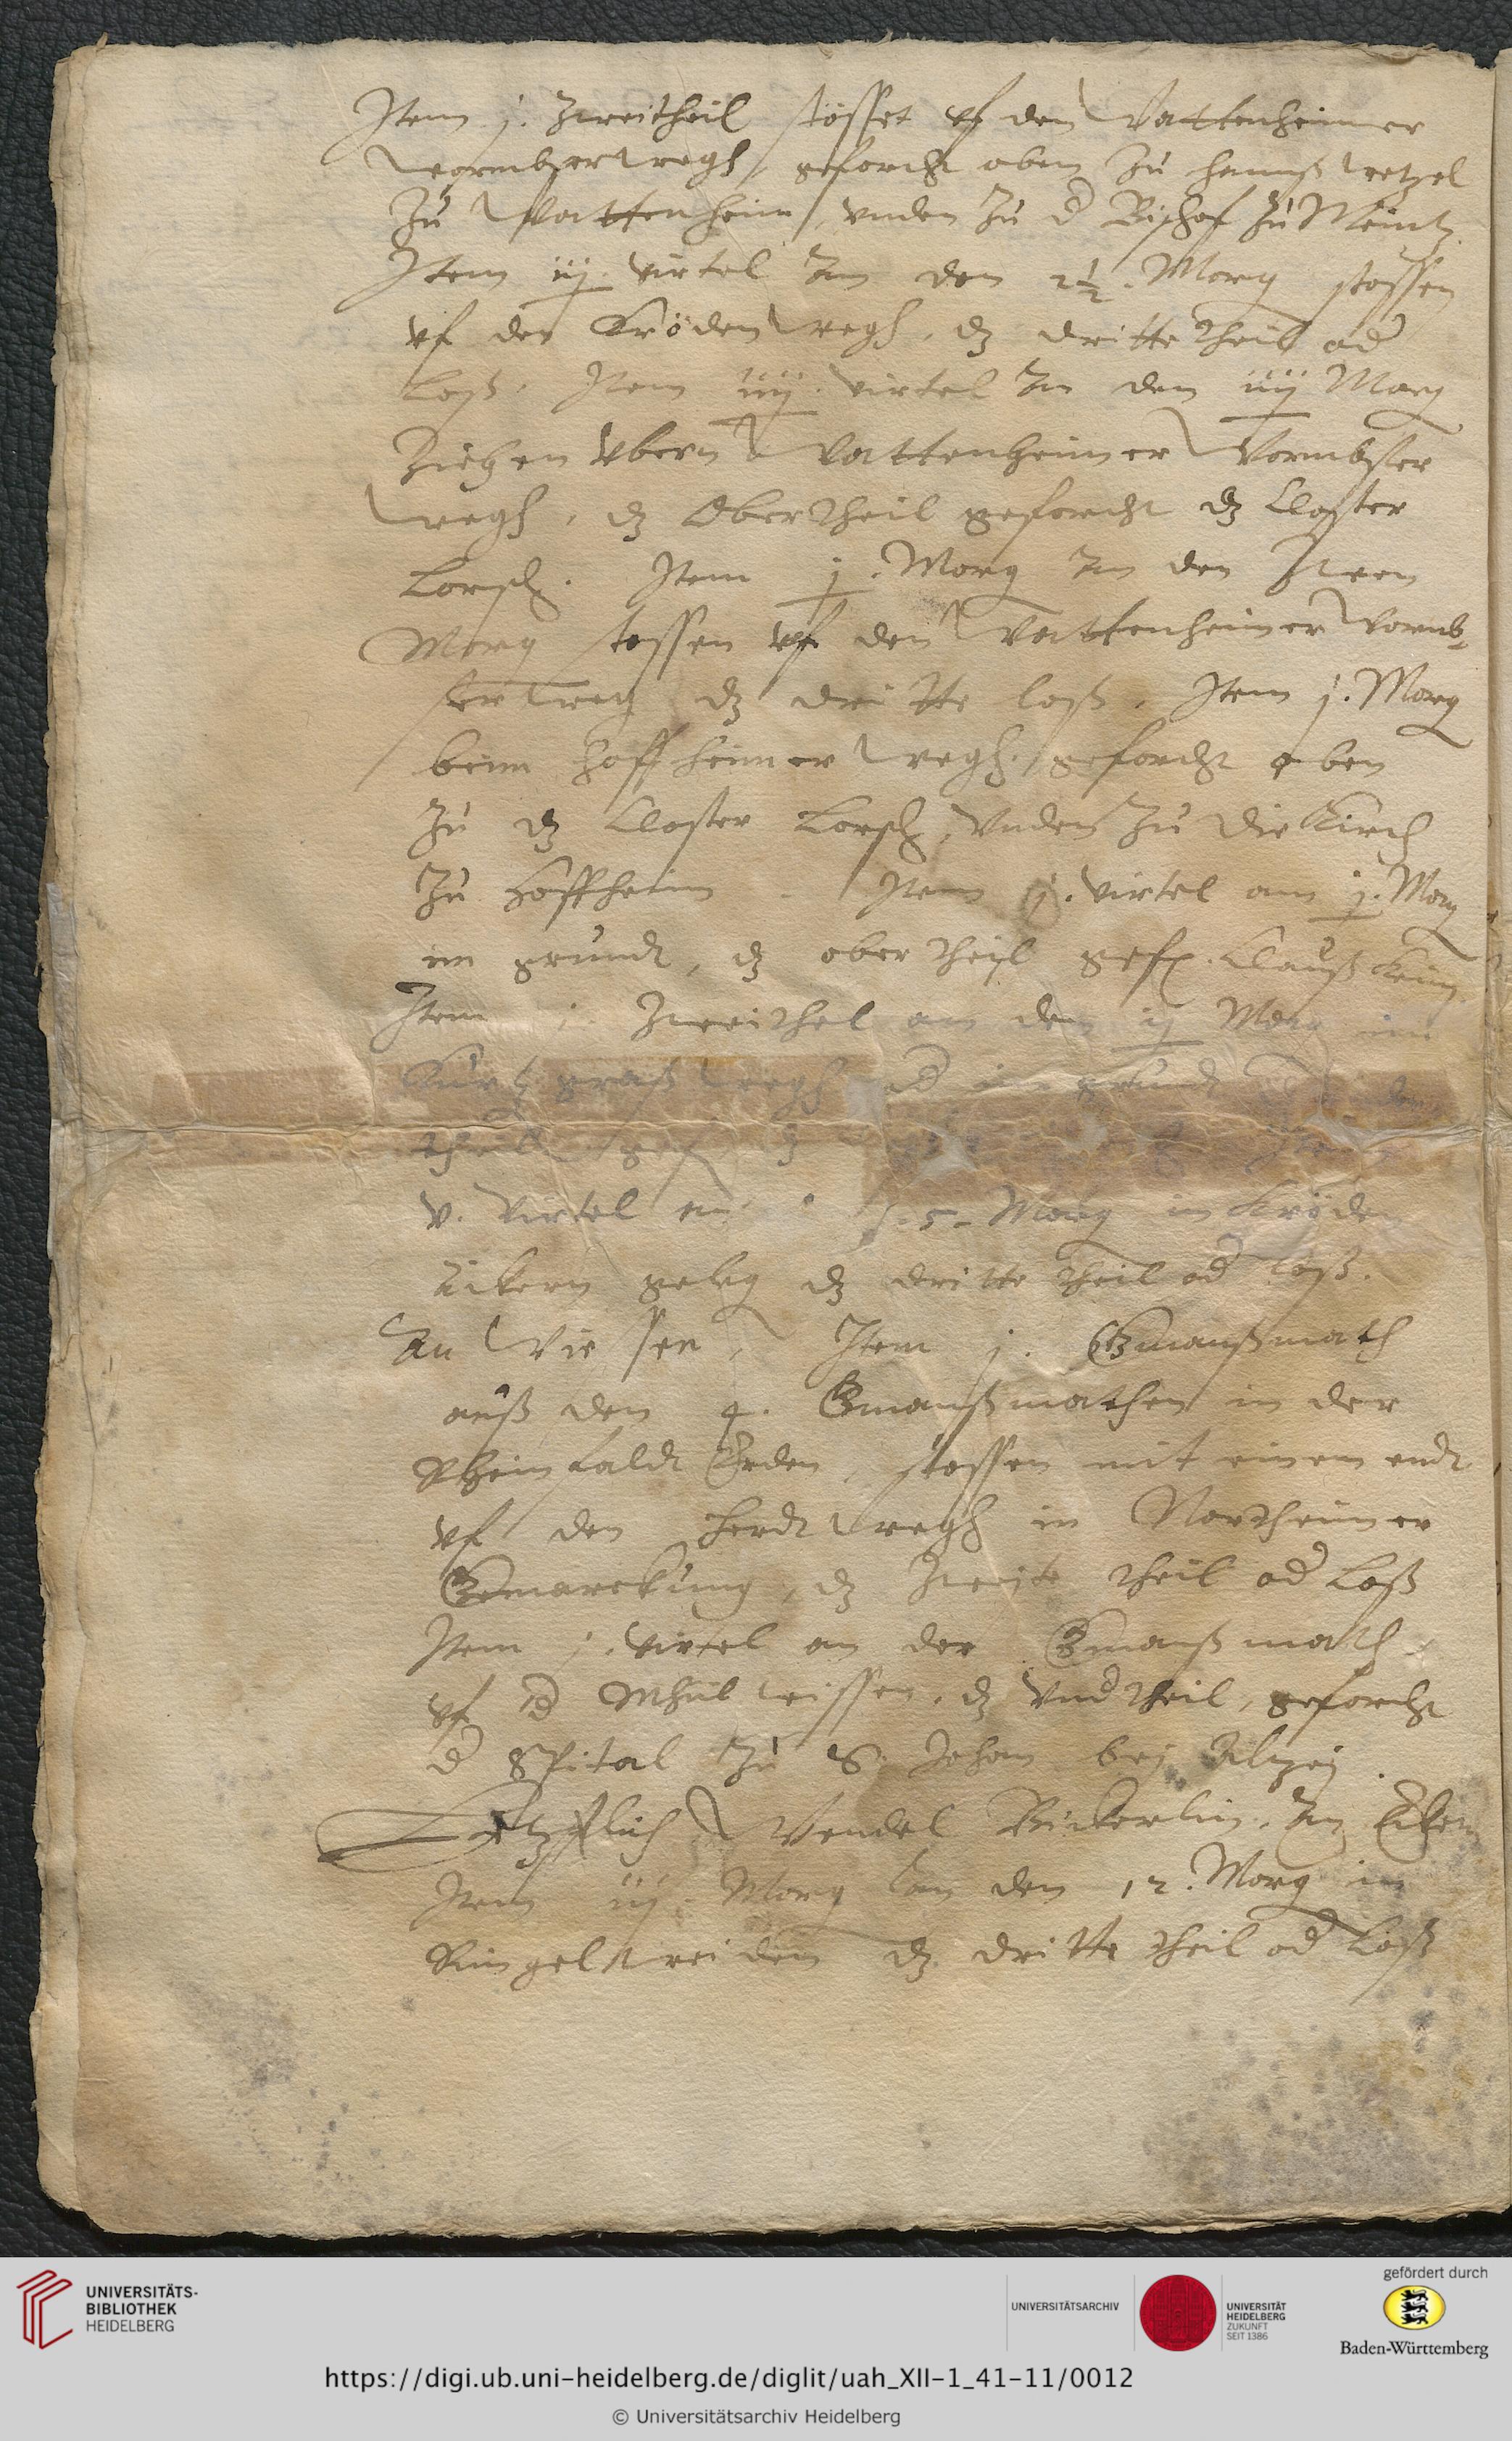 Item j. Zweitheil stösset vf den Wattenheimer
wormbser wegh, geforcht oben zu hannß wetzel
zu Wattenheim, vnden zu d Bischof zu Meintz.
Item iij. virtel Inn den 2½. Morg stossen
vf den Krödenwegh, dz dritte theil od
Loß. Item iiij. virtel Inn den iiij Morg
Ziehen vbern Wattenheimer Wormbser
wegh, dz Obertheil geforcht dz Closter
Lorsch. Item j. Morg Inn den Zwen
Morg stossen vf den Wattenheimer Wormb-
ser weg dz dritte loß. Item j. Morg
beim hoffheimer wegh. geforcht oben
zu dz Closter Lorsch, vnden zu die Kirch
zu Hoffheim. Item j. virtel am j. Morg
im grundt, dz ober theil gef. Clauß
Item j. Zweithel an den ij Morg im
graß wegh od im grundt
theil gef
v. virtel 5. Morg in Kröden
äckern geleg dz dritte theil od loß.
An Wiessen, Item j. Gmanßmath
auß den 4. Gmanßmathen in der
Rheinfaldt Erden, stossen mit einem endt
vf den herdtwegh in Northeimer
Gmarckung, dz Zweite theil od Loß
Item j. virtel an der Gmanßmath
vf d Mhülwissen, dz Vnd theil, geforcht
d Spital zu S. Johan bej Altzej.
Letzstlich Wendel Bickerlin. An Eckern
Item iij. Morg an den 12. Morg im
Ringelsweiden dz dritte theil od Loß
UNIVERSITÄTS-
BIBLIOTHEK
HEIDELBERG
UNIVERSITÄTSARCHIV
UNIVERSITÄT
HEIDELBERG
ZUKUNFT
SEIT 1386
gefördert durch
Baden-Württemberg
https://digi.ub.uni-heidelberg.de/diglit/uah_XII-1_41-11/0012
© Universitätsarchiv Heidelberg